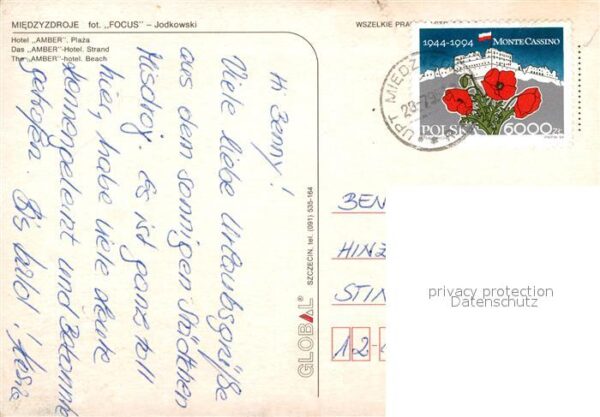 MIĘDZYZDROJE fot. „FOCUS” – Jodkowski
Hotel „AMBER”. Plaża
Das „AMBER”-Hotel. Strand
The „AMBER”-hotel. Beach
WSZELKIE
1944-1994 MONTE CASSINO
POLSKA 6000 zł
UPT MIĘDZYZDROJE
Hi Benny!
Viele liebe Urlaubsgrüße
aus dem sonnigen Städtchen
Misdroj. Es ist ganz toll
hier, habe viele Leute
kennengelernt und Bekannte
getroffen. Bis bald! Kasia
GLOBAL
SZCZECIN, tel. (091) 535-164
BEN
HINZ
STIN
12-
privacy protection
Datenschutz